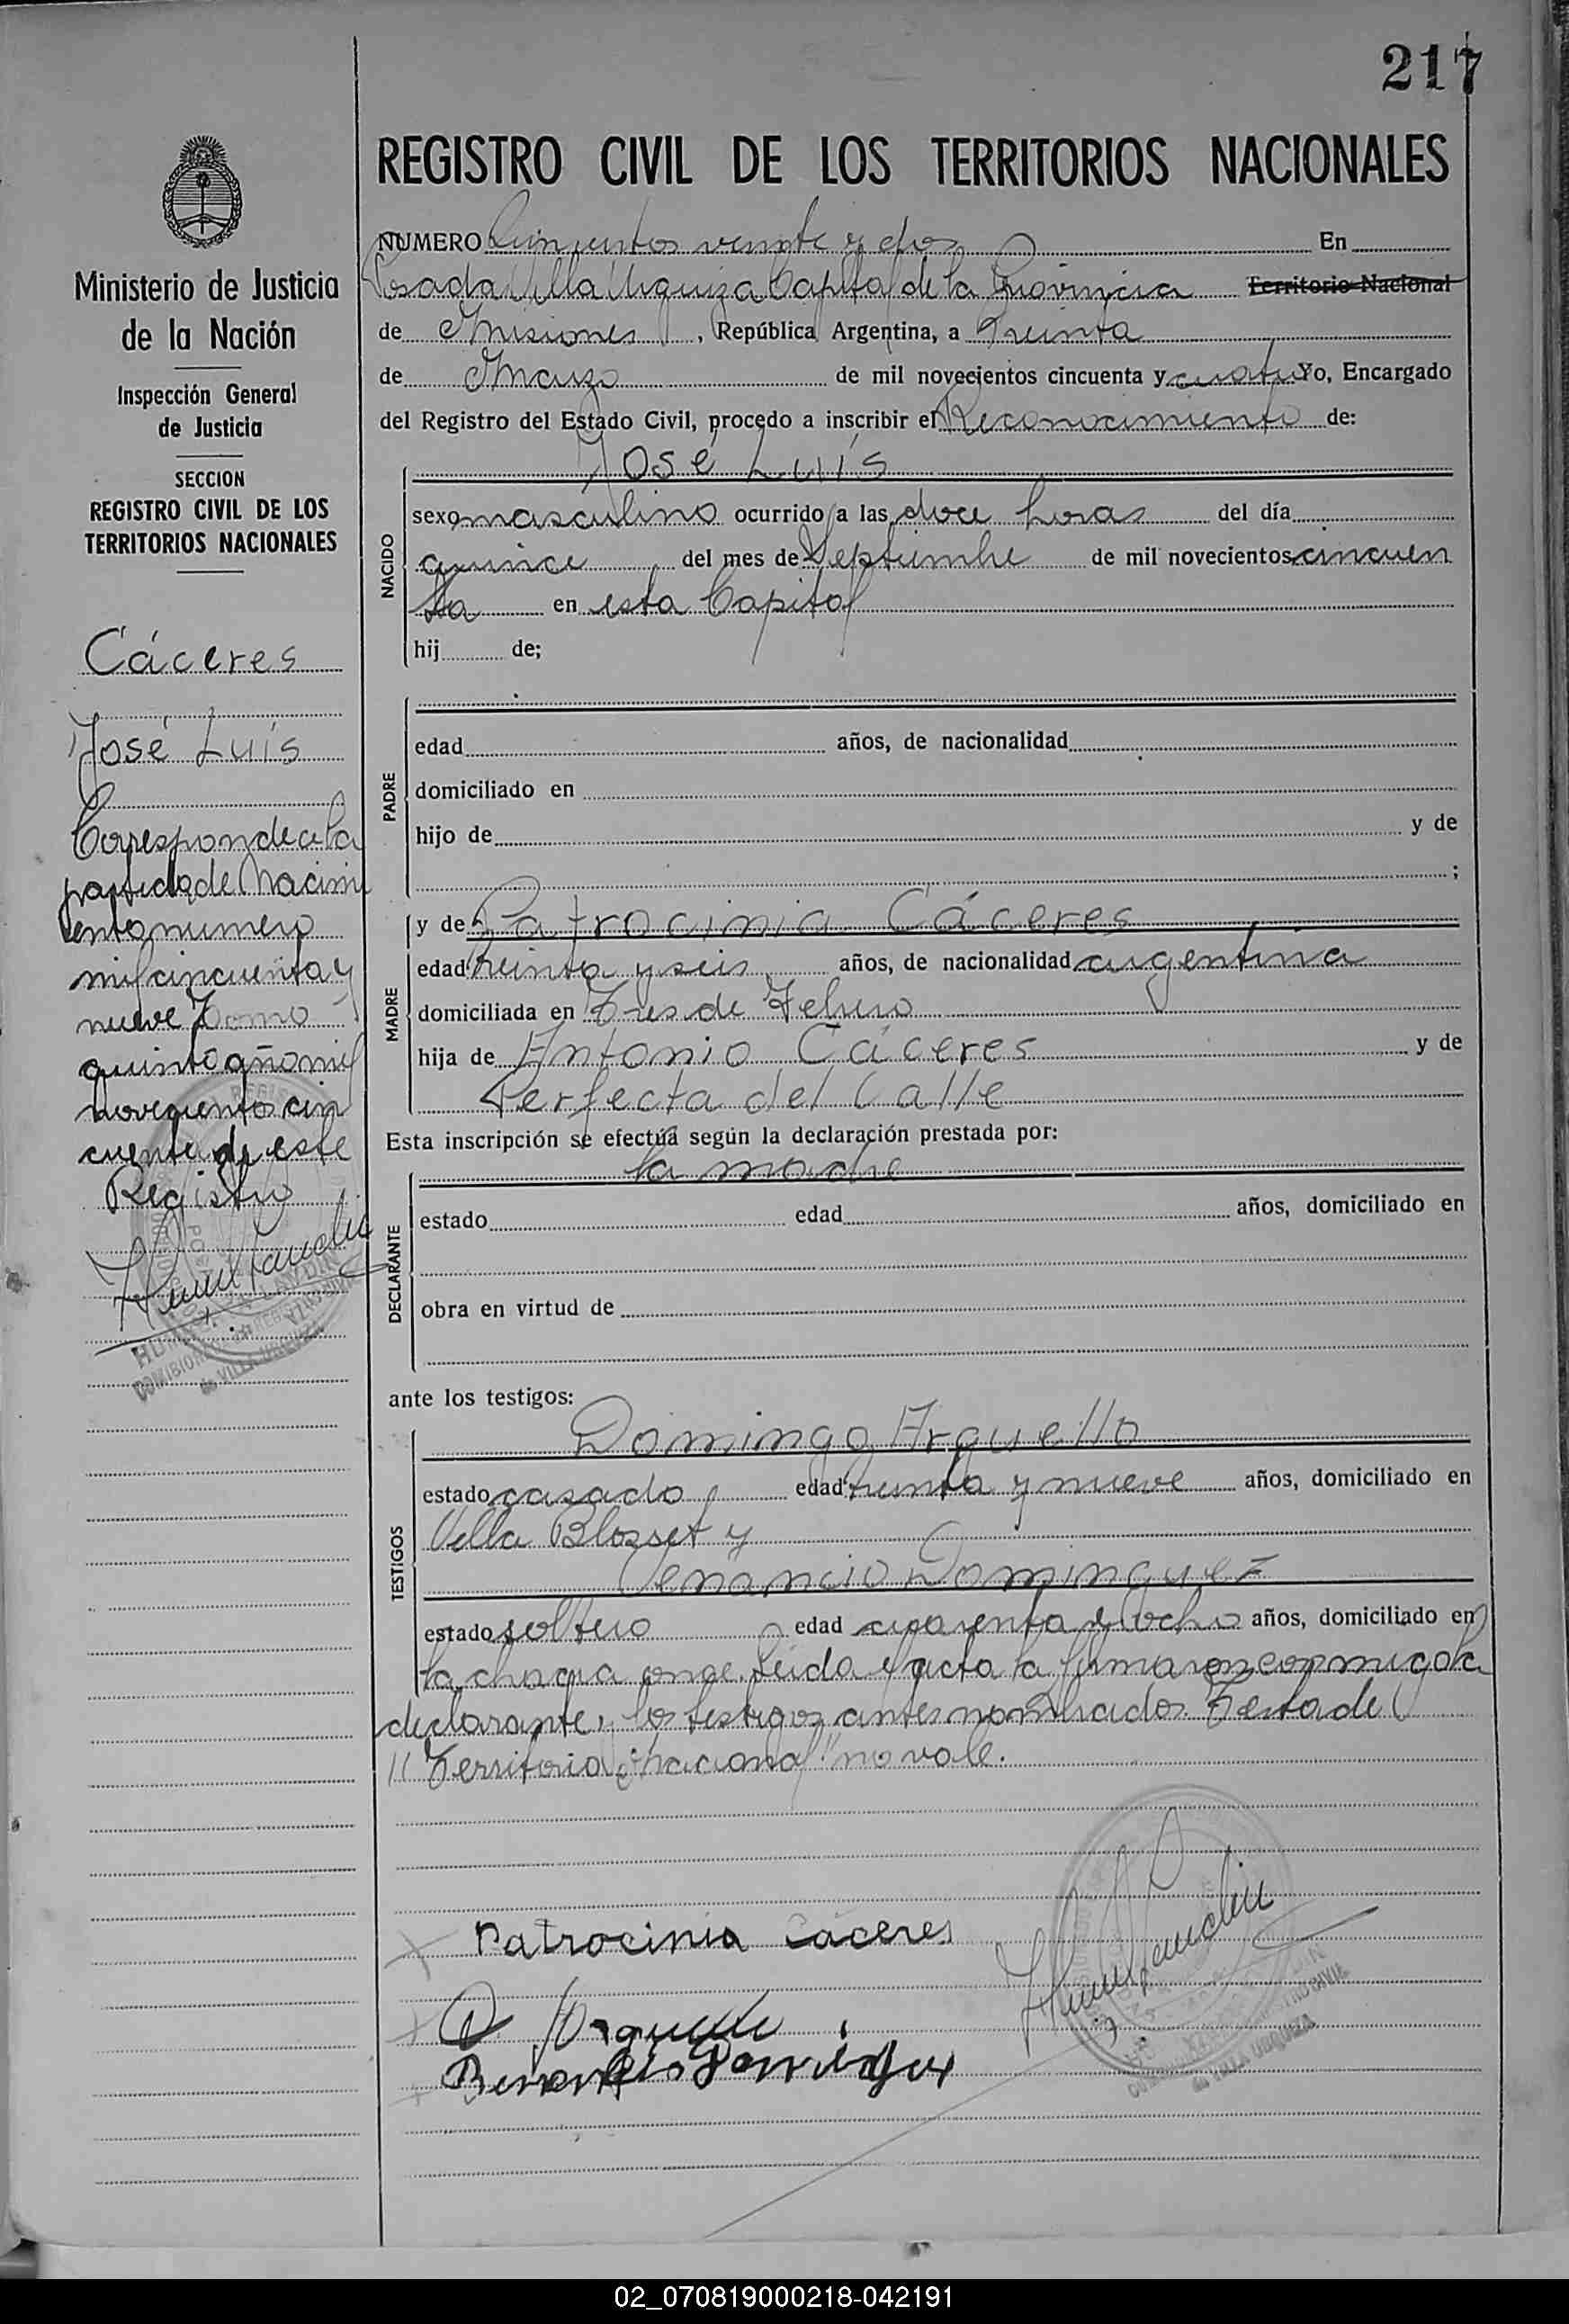 217
REGISTRO CIVIL DE LOS TERRITORIOS NACIONALES
Ministerio de Justicia
de la Nación
Inspección General
de Justicia
SECCION
REGISTRO CIVIL DE LOS
TERRITORIOS NACIONALES
Cáceres
José Luís
Corresponde a la
partida de Nacimi
ento numero
mil cincuenta y
nueve Tomo
quinto año mil
novecientos cin
cuenta de este
Registro
NUMERO Quinientos veinte y dos En
Posadas Villa Urquiza Capital de la Provincia Territorio Nacional
de Misiones, República Argentina, a Treinta
de Marzo de mil novecientos cincuenta y cuatro Yo, Encargado
del Registro del Estado Civil, procedo a inscribir el Reconocimiento de:
NACIDO
José Luís
sexo masculino ocurrido a las doce horas del día
quince del mes de Septiembre de mil novecientos cincuen
ta en esta Capital
hij de;
PADRE
edad años, de nacionalidad
domiciliado en
hijo de y de
;
MADRE
y de Patrocinia Cáceres
edad treinta y seis años, de nacionalidad argentina
domiciliada en Tres de Febrero
hija de Antonio Cáceres y de
Perfecta del Valle
Esta inscripción se efectúa según la declaración prestada por:
DECLARANTE
la madre
estado edad años, domiciliado en
obra en virtud de
ante los testigos:
TESTIGOS
Domingo Arguello
estado casado edad treinta y nueve años, domiciliado en
Villa Blosset y
Venancio Dominguez
estado soltero edad cuarenta y ocho años, domiciliado en
la chacra once. Leida el acta la firmaron conmigo la
declarante y los testigos antes nombrados. Testado
"Territorio Nacional" no vale.
Patrocinia Cáceres
D Arguello
02_070819000218-042191